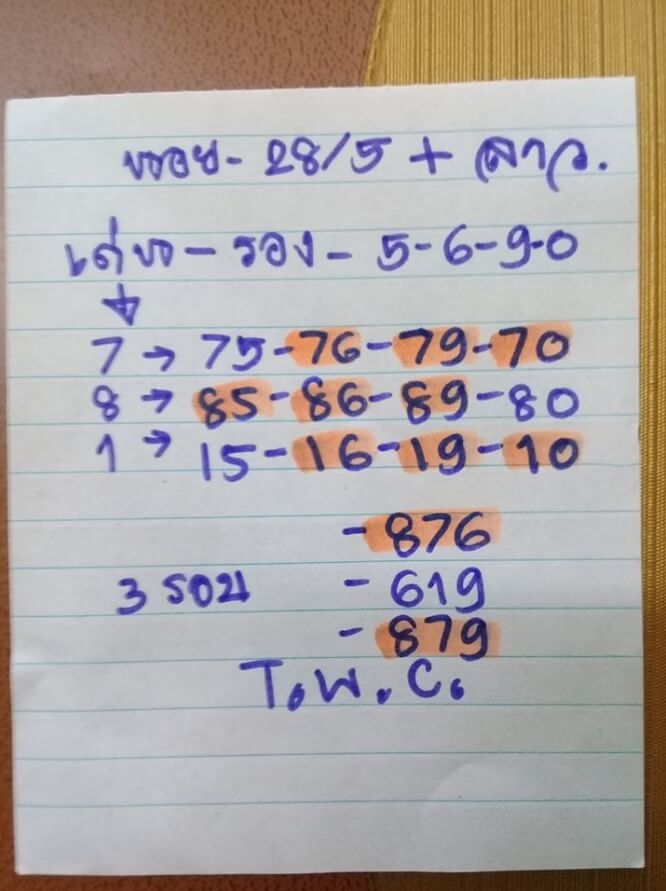 หอย - 28/5 + ลาว.
เด่น - รอง - 5-6-9-0
↓
7 → 75-76-79-70
8 → 85-86-89-80
1 → 15-16-19-10
- 876
3 รอบ - 619
- 879
T.W.C.